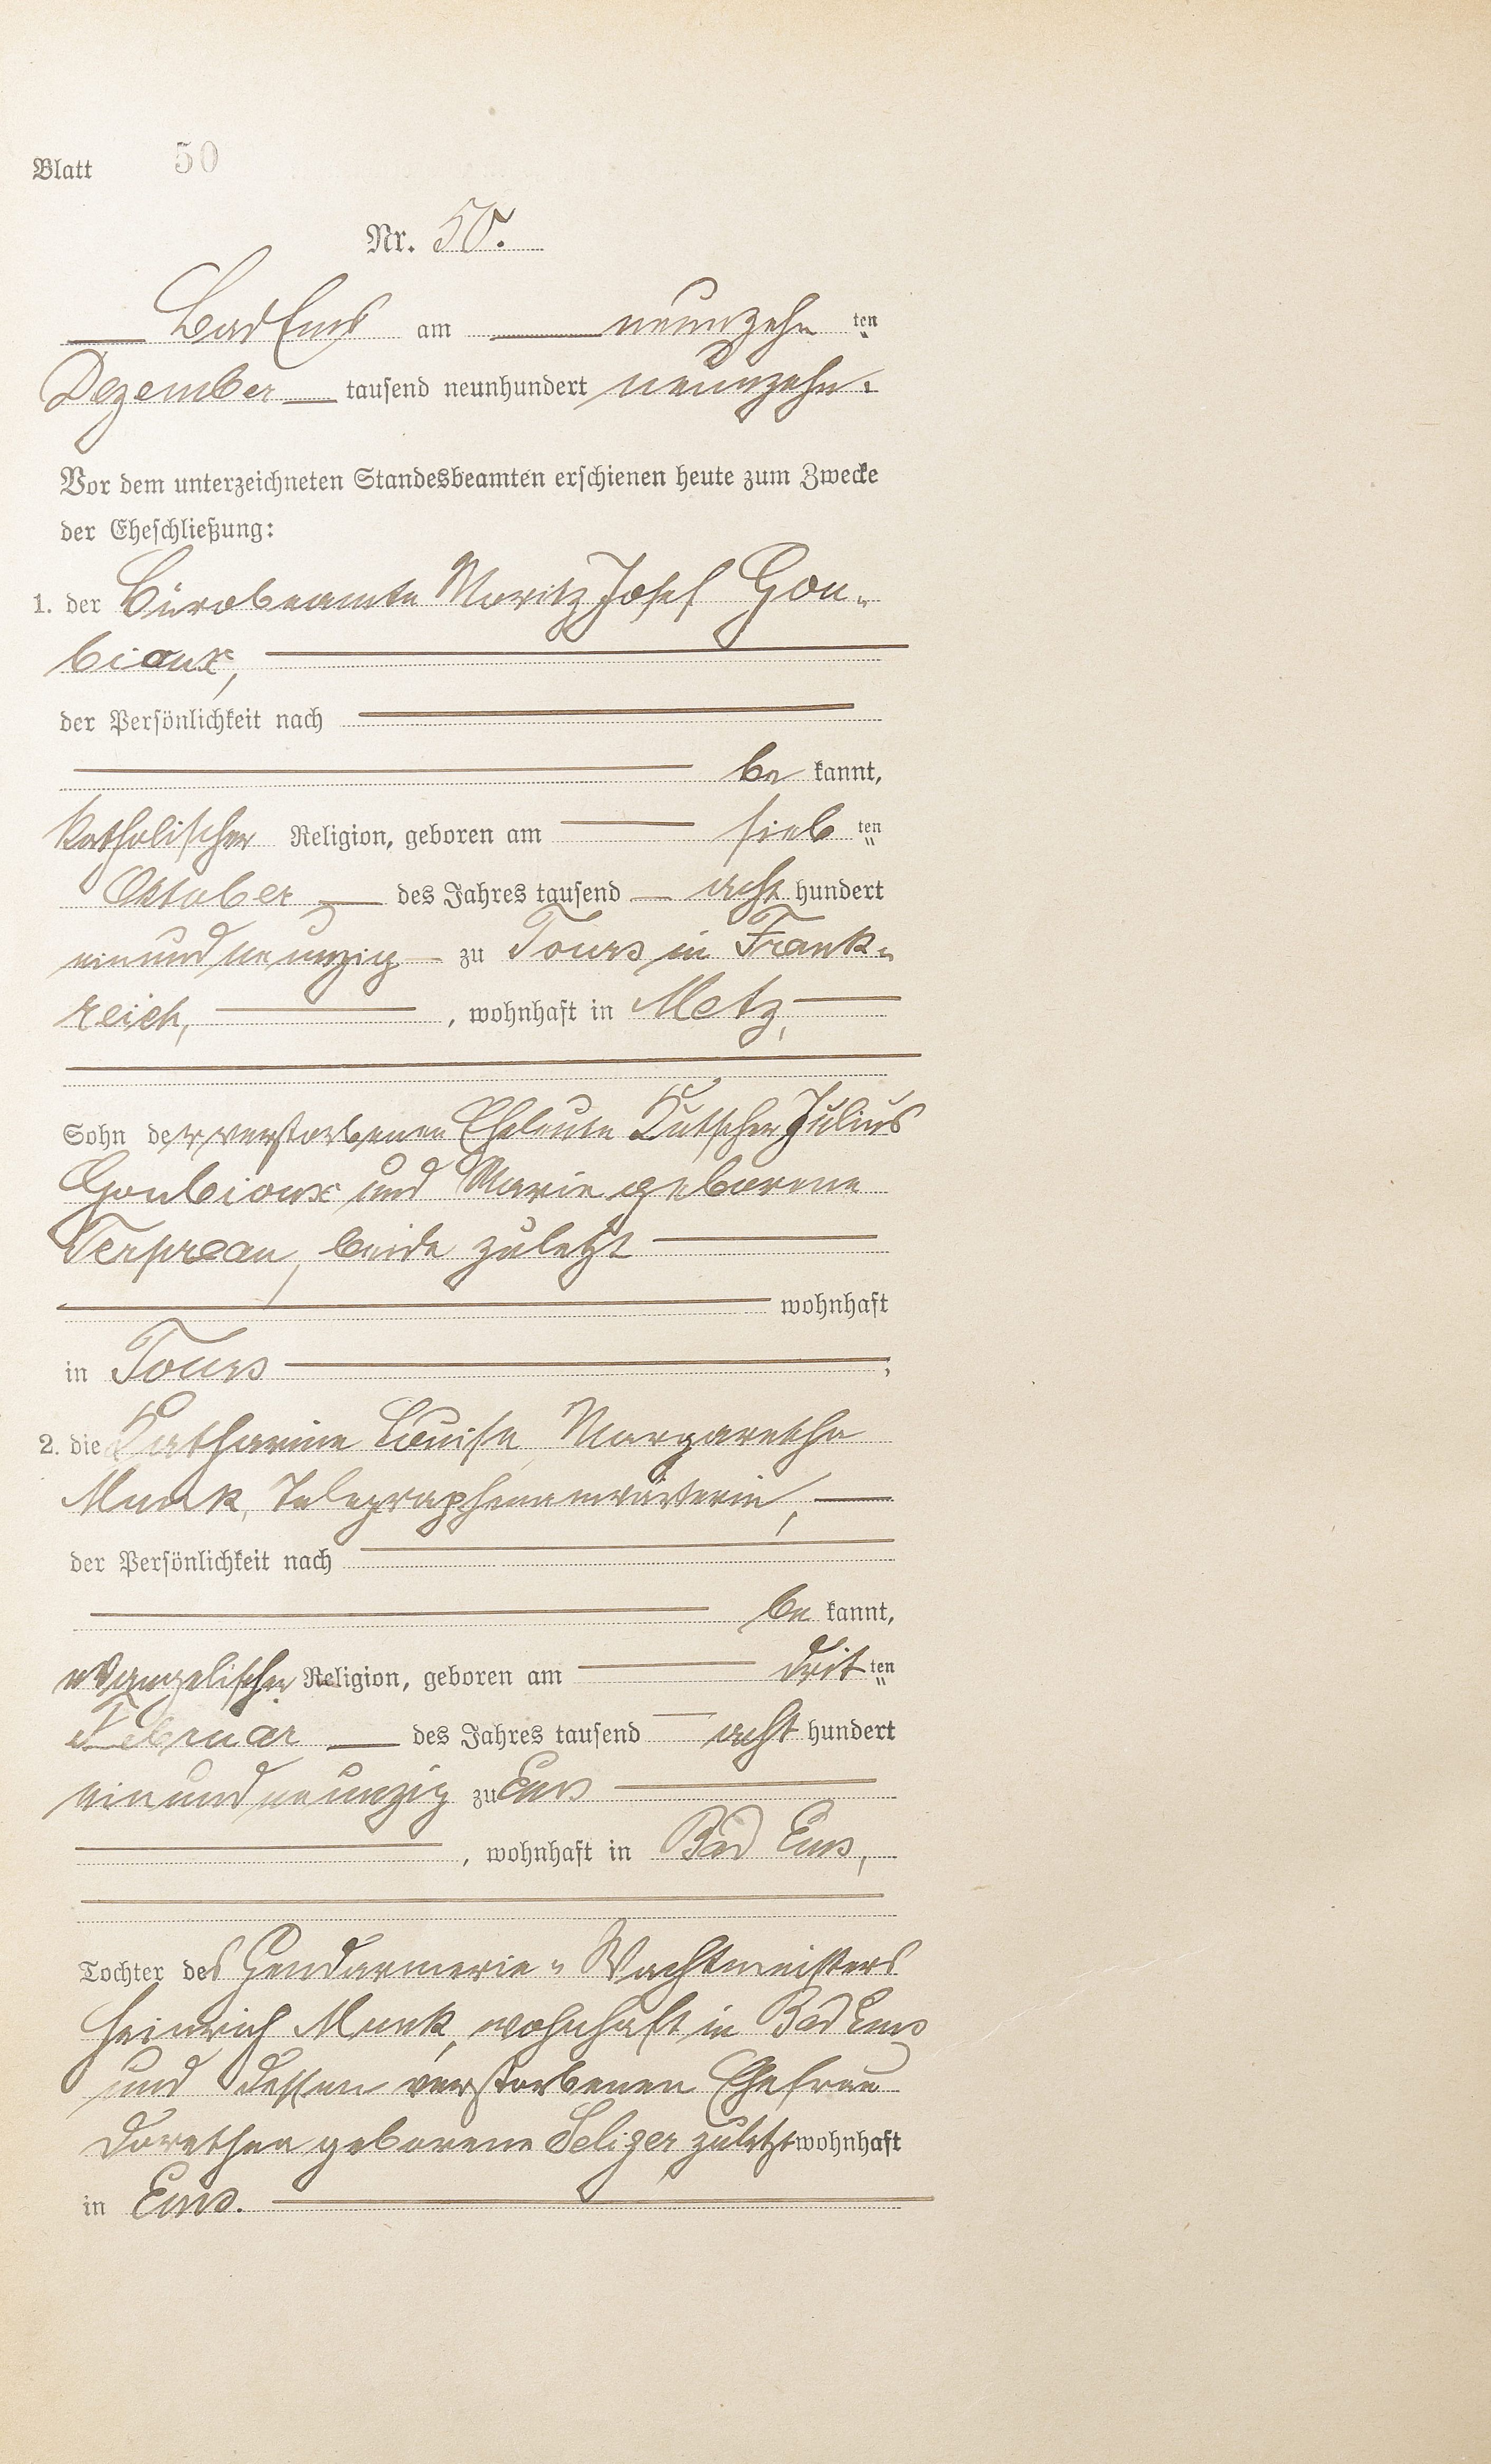 Blatt 50
Nr. 50.
Bad Ems am neunzehn ten
Dezember tausend neunhundert neunzehn.
Vor dem unterzeichneten Standesbeamten erschienen heute zum Zwecke
der Eheschließung:
1. der Bürobeamte Moritz Josef Gou-
bioux,
der Persönlichkeit nach
be kannt,
katholischer Religion, geboren am sieb ten
Oktober des Jahres tausend acht hundert
einundneunzig zu Tours in Frank-
reich, , wohnhaft in Metz,
Sohn der verstorbenen Eheleute Kutscher Julius
Goubioux und Marie geborene
beide zuletzt
wohnhaft
in Tours ;
2. die Katharine Louise Margaretha
Munk, Telegraphenanwärterin,
der Persönlichkeit nach
be kannt,
evangelischer Religion, geboren am drit ten
Februar des Jahres tausend acht hundert
einundneunzig zu Ems
, wohnhaft in Bad Ems,
Tochter des Gendarmerie-Wachtmeisters
Heinrich Munk, wohnhaft in Bad Ems
und dessen verstorbenen Ehefrau
Dorethea geborene Seliger zuletzt wohnhaft
in Ems.